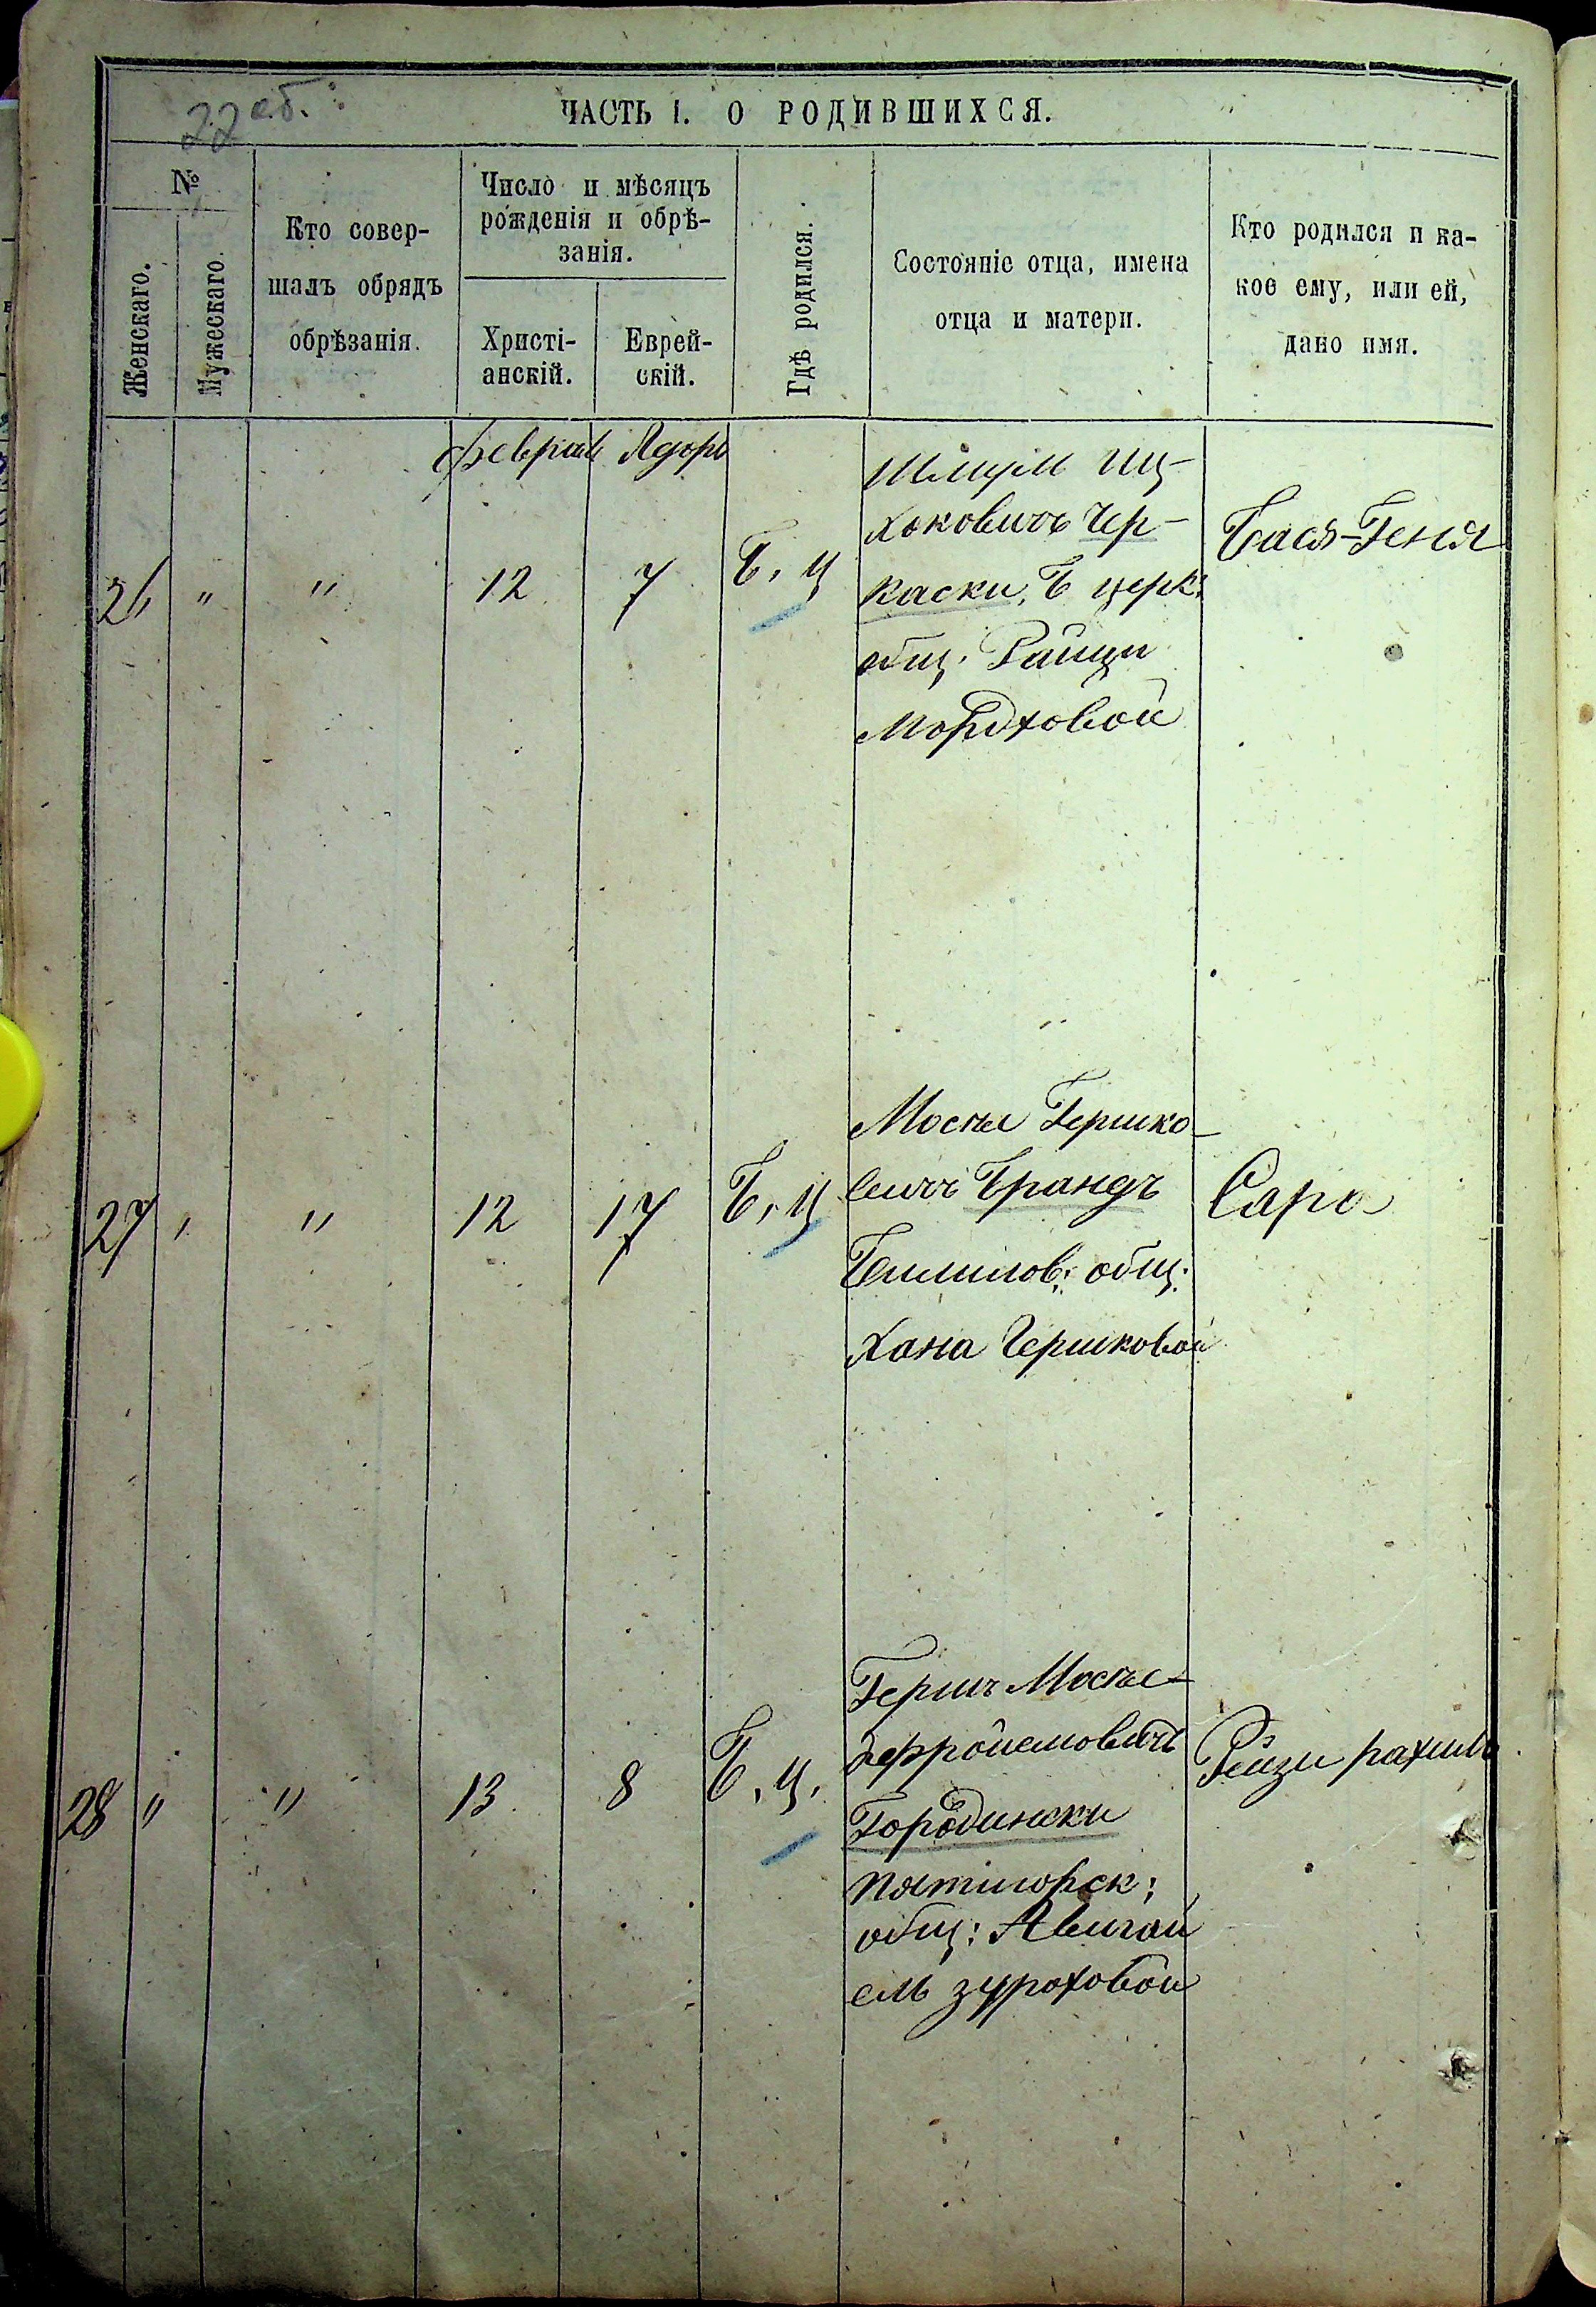 22 об.
ЧАСТЬ I. О РОДИВШИХСЯ.
№
Женскаго.
Мужескаго.
Кто совер-
шалъ обрядъ
обрѣзанія.
Число и мѣсяцъ
рожденія и обрѣ-
занія.
Христі-
анскій.
Еврей-
скій.
Гдѣ родился.
Состояніе отца, имена
отца и матери.
Кто родился и ка-
кое ему, или ей,
дано имя.
феврал Адоръ
26 " " 12 7 Б, Ц
Шлиум Иц-
хоковичъ Чер-
каски, Б церк:
общ: Райци
Мордховой
Бася-Геня
27 " " 12 17 Б, Ц
Мосъе Гершко-
вичъ Брандъ
общ:
Хана Гершковой
Сара
28 " " 13 8 Б, Ц,
Гершъ Мосъе-
Ефроимовичъ
Городински
Пятигорск;
общ: Авигаи
ель зурохович
Рейзи рахиль